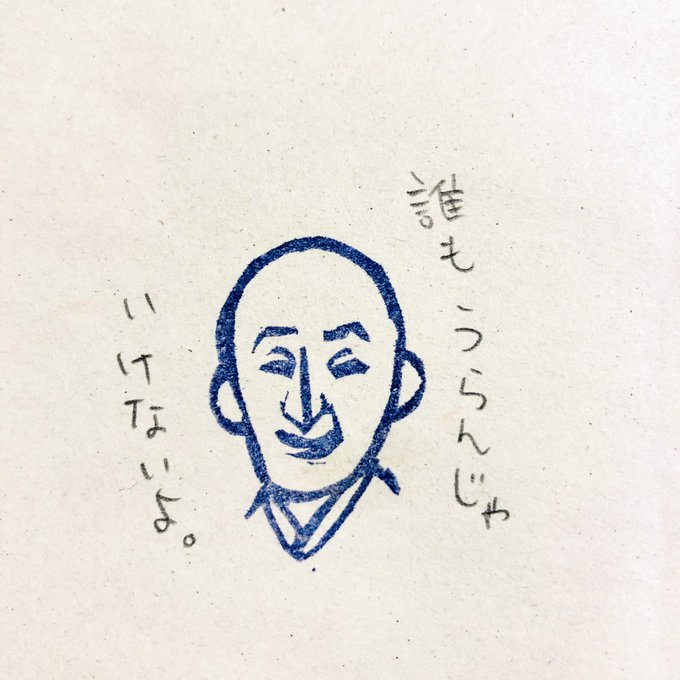 誰もうらんじゃ
いけないよ。